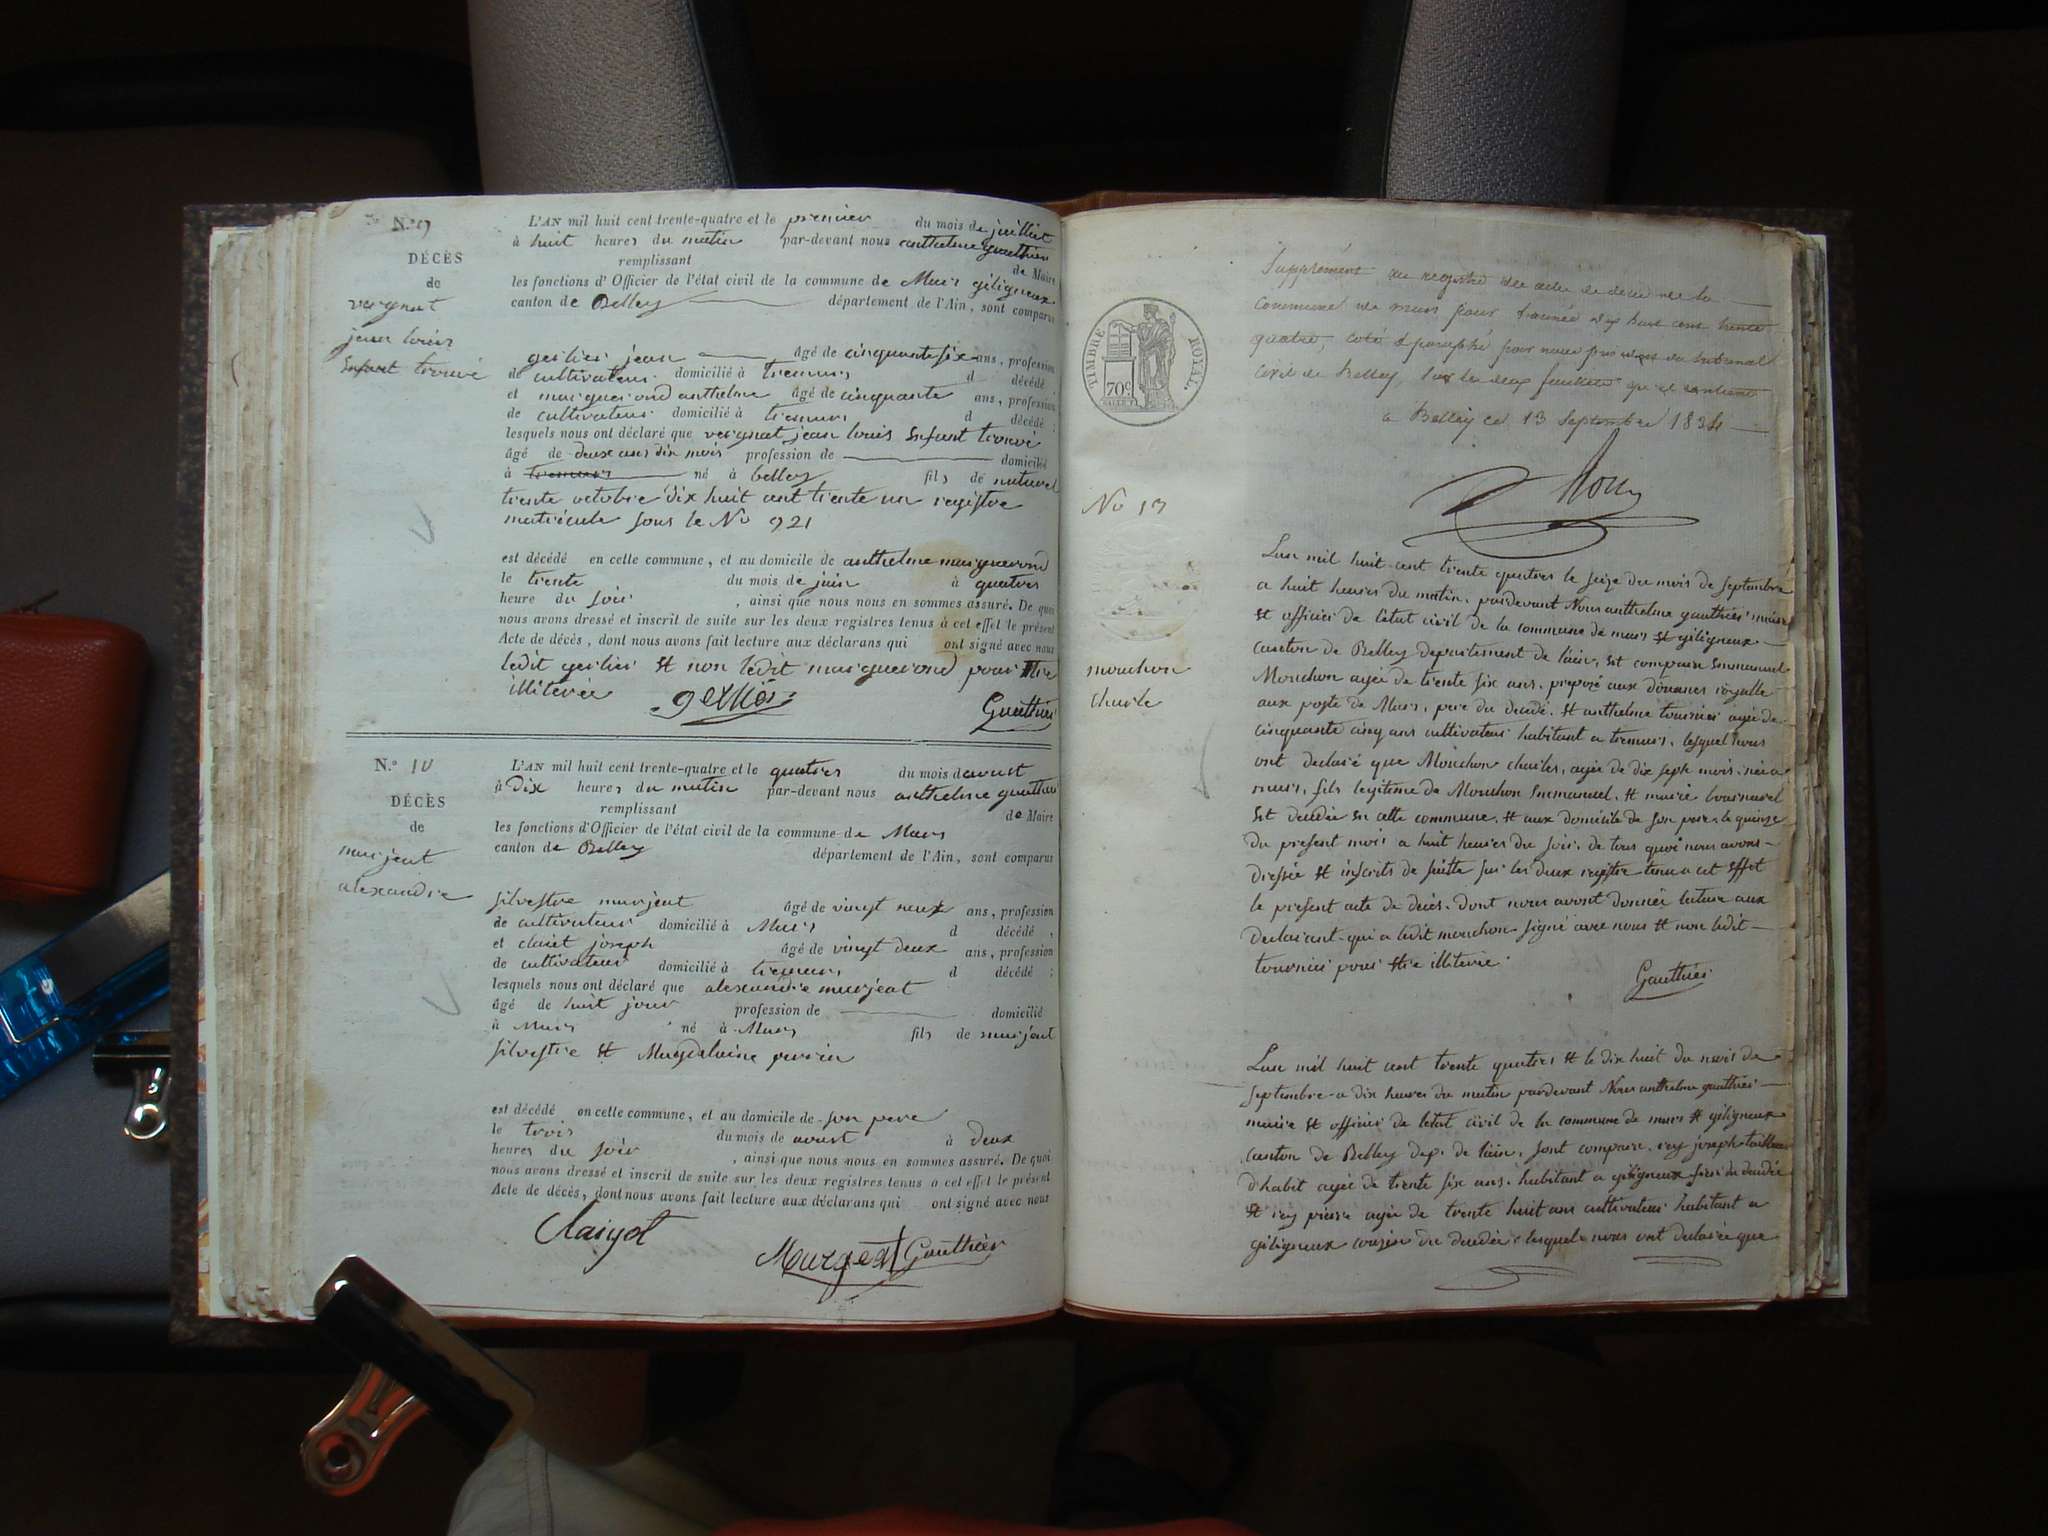 N.° 9
DÉCÈS
de
vergnat
jean louis
Enfant trouvé
L'AN mil huit cent trente-quatre et le premier du mois de juilliet
à huit heures du matin par-devant nous anthelme gauthier
remplissant de Maire
les fonctions d'Officier de l'état civil de la commune de Murs giligneux
canton de Belley département de l'Ain, sont comparus
gerlier jean âgé de cinquante six ans, profession
de cultivateur domicilié à tremurs d décédé
et murguerond anthelme âgé de cinquante ans, profession
de cultivateur domicilié à tremurs d décédé ;
lesquels nous ont déclaré que vergnat jean louis Enfant trouvé
âgé de deux ans dix mois profession de domicilié
à tremurs né à belley fils de naturel
trente octobre dix huit cent trente un registre
matricule sous le No 921
est décédé en cette commune, et au domicile de anthelme murguerond
le trente du mois de juin à quatres
heure du soir , ainsi que nous nous en sommes assuré. De quoi
nous avons dressé et inscrit de suite sur les deux registres tenus à cet effet le présent
Acte de décès, dont nous avons fait lecture aux déclarans qui ont signé avec nous
ledit gerlier Et non ledit murguerond pour Etre
illiterée gerlier Gauthier
N.° 10
DÉCÈS
de
murjeat
alexandre
L'AN mil huit cent trente-quatre et le quatres du mois d'avout
à Dix heures du matin par-devant nous anthelme gauthier
remplissant de Maire
les fonctions d'Officier de l'état civil de la commune de Murs
canton de Belley département de l'Ain, sont comparus
silvestre murjeat âgé de vingt neuf ans, profession
de cultivateur domicilié à Murs d décédé,
et claret joseph âgé de vingt deux ans, profession
de cultivateur domicilié à tremurs d décédé ;
lesquels nous ont déclaré que alexandre murjeat
âgé de huit jour profession de domicilié
à Murs né à Murs fils de murjeat
silvestre Et Magdelaine perrin
est décédé en cette commune, et au domicile de son pere
le trois du mois de avout à deux
heures du soir , ainsi que nous nous en sommes assuré. De quoi
nous avons dressé et inscrit de suite sur les deux registres tenus a cet effet le présent
Acte de décès, dont nous avons fait lecture aux déclarans qui ont signé avec nous
Murgeat Gauthier
TIMBRE ROYAL
70c
Supplément au registre des actes de décès de la
commune de murs pour l'année dix huit cent trente
quatre, coté & paraphé par nous président du tribunal
civil de Belley, sur les deux feuillets qu'il contient
a Belley ce 13 septembre 1834
No 17
mouchon
charle
Lan mil huit cent trente quatres le seize du mois de septembre
a huit heures du matin, pardevant Nous anthelme gauthier maire
Et officier de l'état civil de la commune de murs Et giligneux
canton de Belley departement de lain, Est comparu Emmanuel
Mouchon agée de trente six ans, preposé aux douanes royalle
aux poste de Murs, pere du decedé, Et anthelme tournier agée de
cinquante cinq ans cultivateur habitant a tremurs, lesquel nous
ont declaré que Mouchon charles, agée de dix sept mois, née a
murs, fils legitime de Mouchon Emmanuel, Et marie
Est decedée En cette commune, Et aux domicile de son pere, le quinze
du present mois a huit heures du soir, de tous quoi nous avons
dressée Et inscrits de suitte sur les deux registre tenu a cet Effet
le present acte de décès, dont nous avont donnée lecture aux
declarant qui a ledit mouchon signé avec nous Et non ledit
tournier pour Etre illiterée.
Gauthier
Lan mil huit cent trente quatres Et le dix huit du mois de
septembre a dix heures du matin pardevant Nous anthelme gauthier
maire Et officier de letat civil de la commune de murs Et giligneux
canton de Belley dep. de lain, sont comparu, rey joseph tailleur
d'habit agée de trente six ans, habitant a giligneux frere du decedée
Et rey pierre agée de trente huit ans cultivateur habitant a
giligneux cousin du decedée, lesquel nous ont declarée que